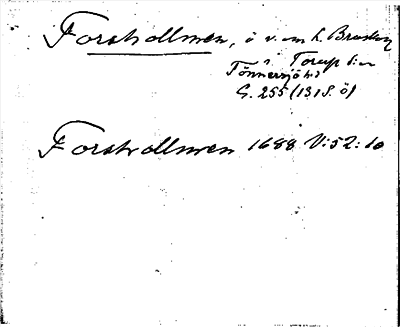 Forshollmen, ö v. om h. Bruskog
i Torup sn
Tönnersjö hd
G. 255 (1318. ö)
Forshollmen 1688 V:52:10